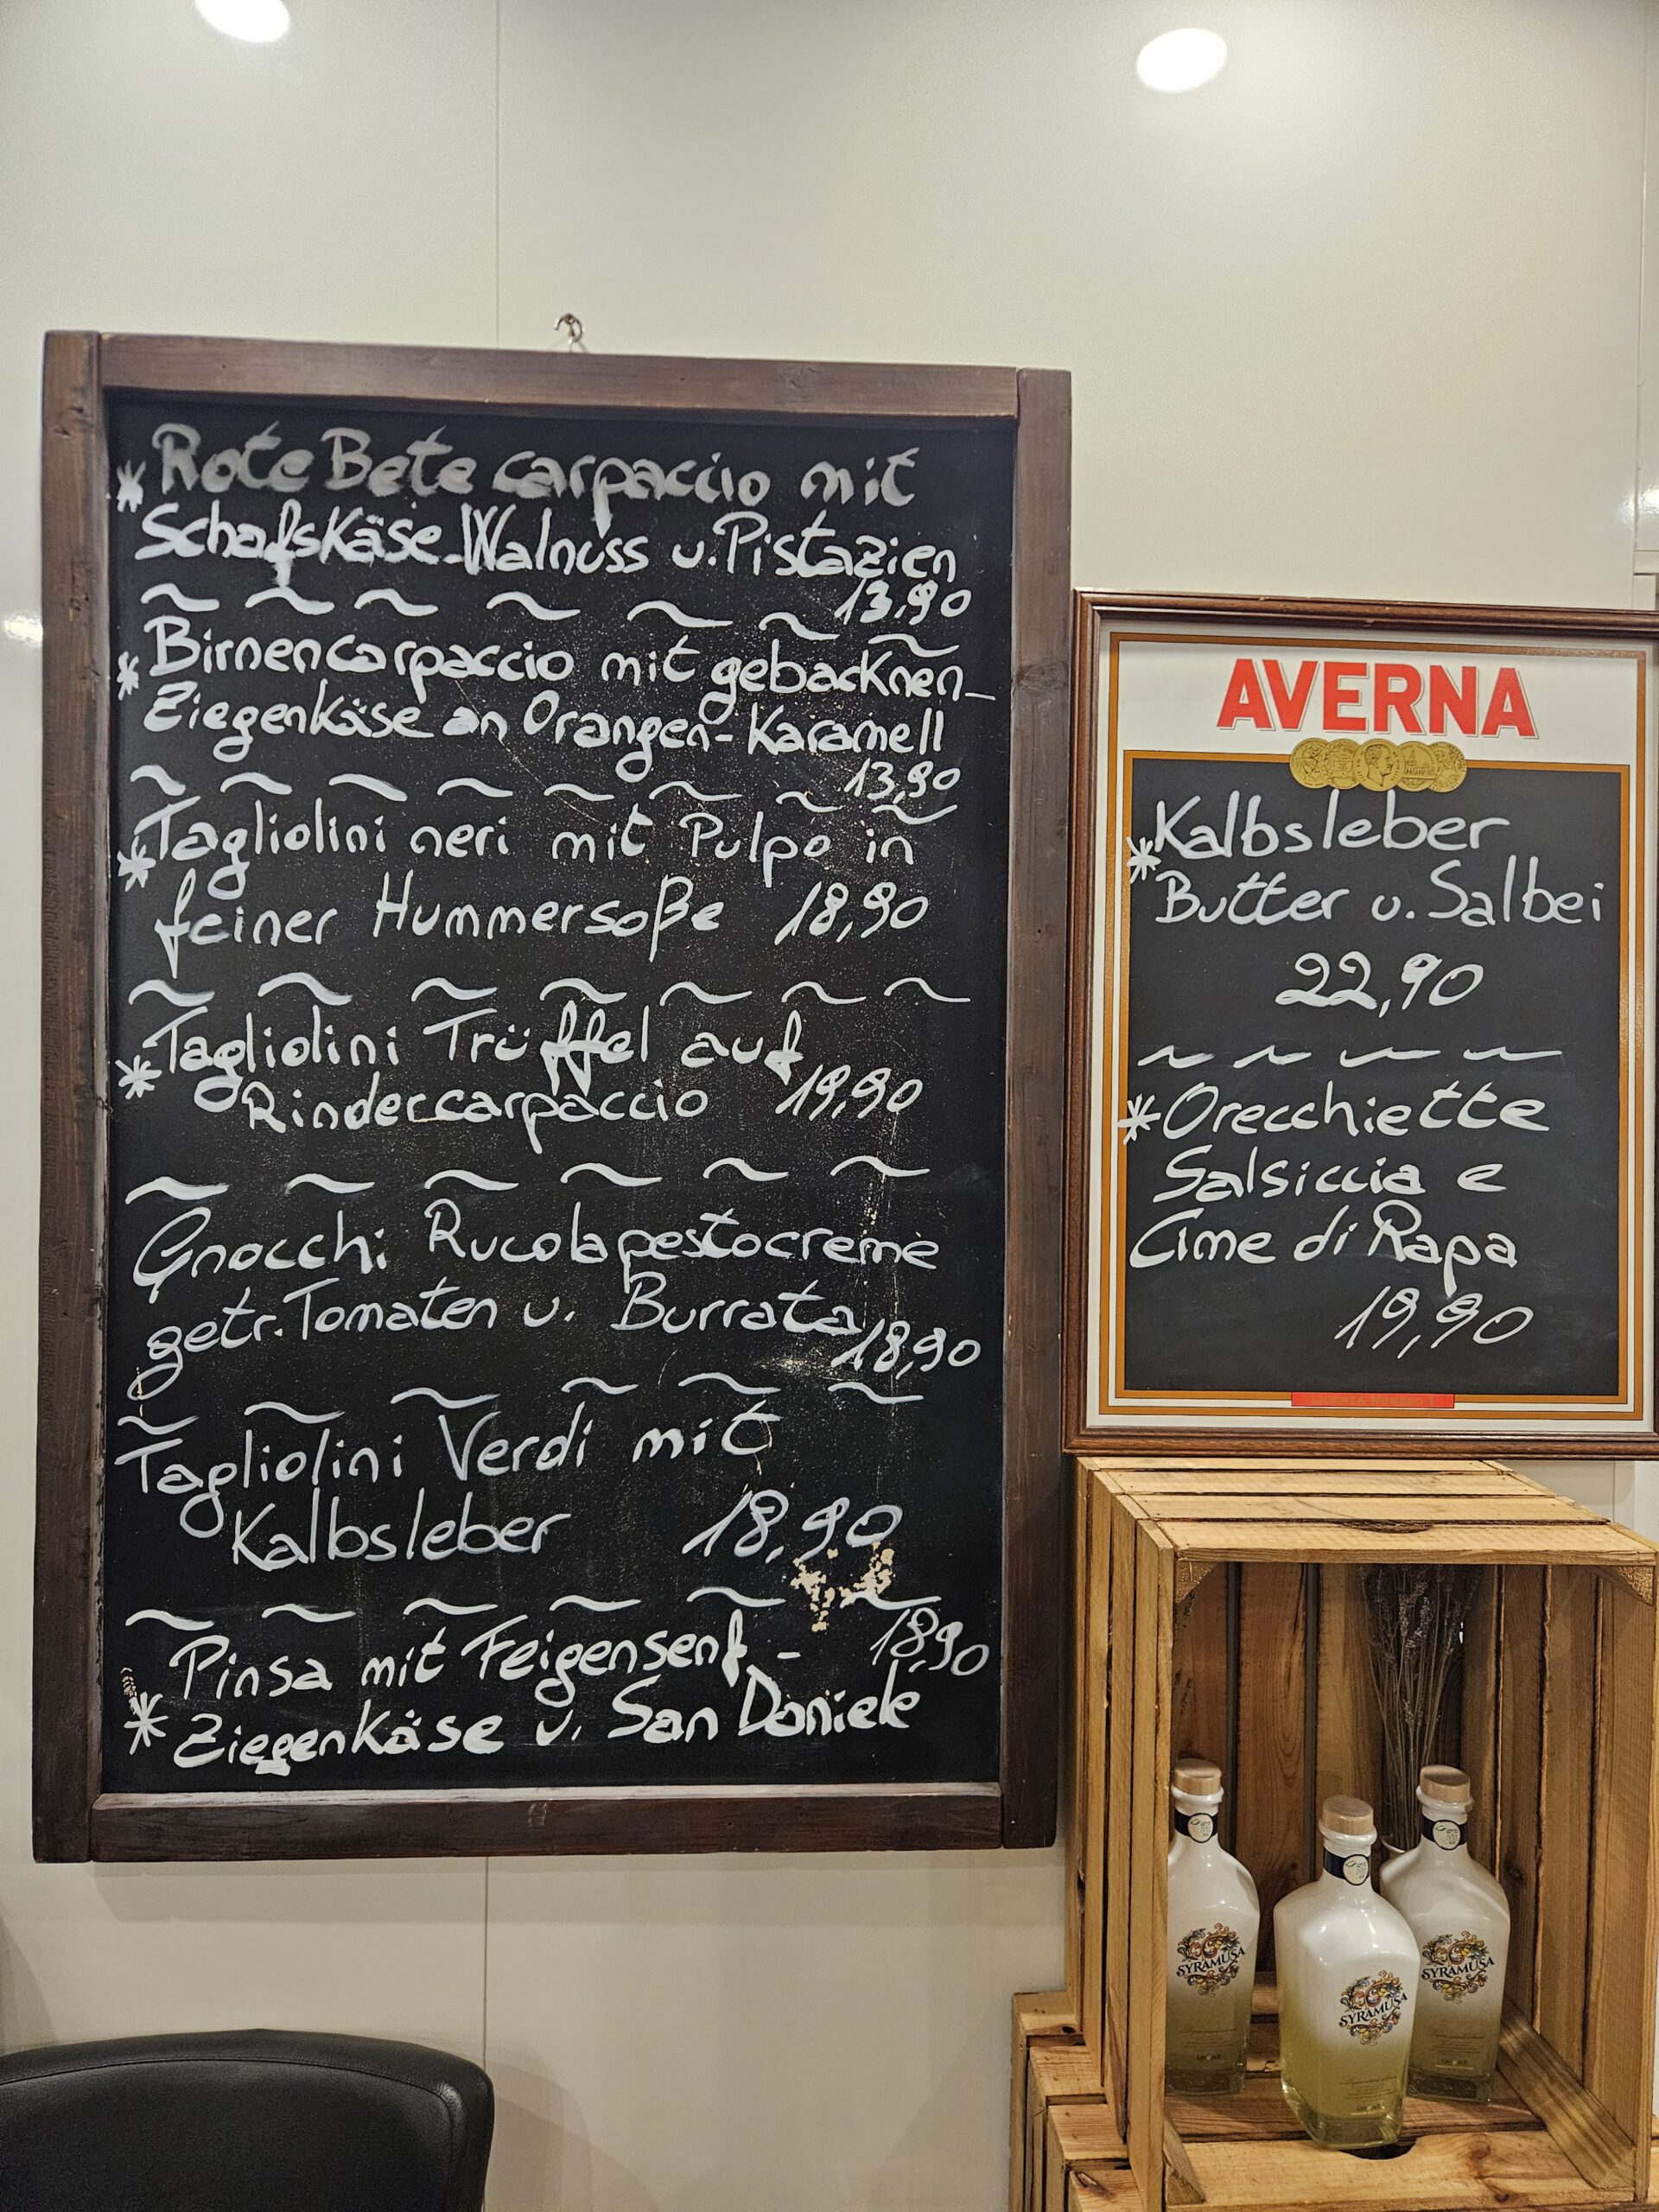 * Rote Bete carpaccio mit
Schafskäse Walnuss u. Pistazien
13,90
~ ~ ~ ~ ~ ~ ~
* Birnencarpaccio mit gebacknen
Ziegenkäse an Orangen-Karamell
13,90
~ ~ ~ ~ ~ ~ ~ ~
* Tagliolini neri mit Pulpo in
feiner Hummersoße 18,90
~ ~ ~ ~ ~ ~ ~
* Tagliolini Trüffel auf
Rindercarpaccio 19,90
~ ~ ~ ~ ~ ~
Gnocchi Rucolapestocreme
getr. Tomaten u. Burrata 18,90
~ ~ ~ ~ ~ ~
Tagliolini Verdi mit
Kalbsleber 18,90
~ ~ ~ ~ ~ ~
Pinsa mit Feigensenf - 18,90
* Ziegenkäse u. San Daniele
AVERNA
* Kalbsleber
Butter u. Salbei
22,90
~ ~ ~ ~
* Orecchiette
Salsiccia e
Cime di Rapa
19,90
SYRAMUSA
SYRAMUSA
SYRAMUSA